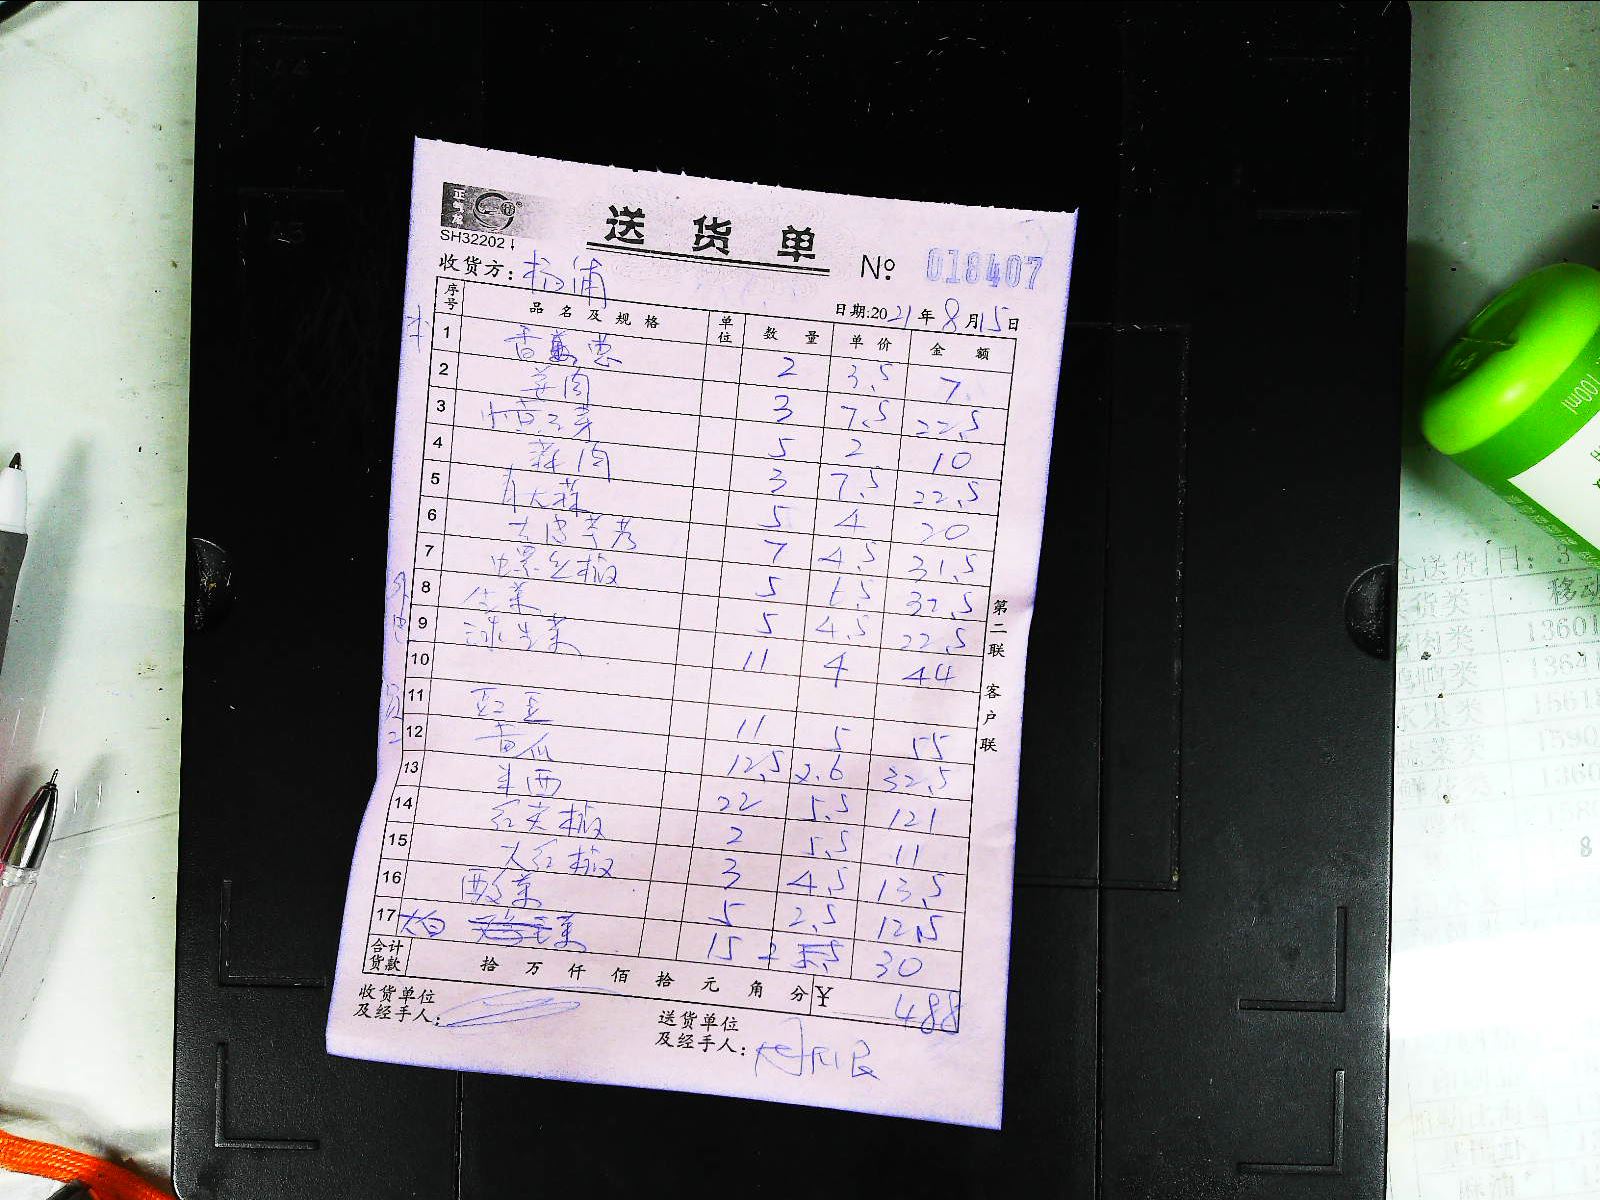 正气龙
SH32202
送货单
№ 018407
收货方:杨浦
日期:2021年8月15日
序号 品名及规格 单位 数量 单价 金额
1 香葱 2 3.5 7
2 姜肉 3 7.5 22.5
3 小黄豆芽 5 2 10
4 蒜肉 3 7.5 22.5
5 青大蒜 5 4 20
6 7 4.5 31.5
7 螺丝椒 5 6.5 32.5
8 生菜 5 4.5 22.5
9 球生菜 11 4 44
10
11 豇豆 11 5 55
12 黄瓜 12.5 2.6 32.5
13 半西 22 5.5 121
14 红尖椒 2 5.5 11
15 大红椒 3 4.5 13.5
16 酸菜 5 2.5 12.5
17 大白菜 15 2 30
合计货款 拾万仟佰拾元角分 ¥ 488
收货单位及经手人:
送货单位及经手人:
第二联 客户联
100ml
送货日: 3
货类 移动
肉类 1360
鸡鸭类 1364
水果类 1561
蔬菜类 1590